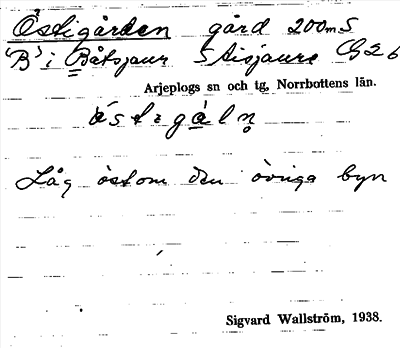 Östigården gård 200mS
"B" i Båtsjaur S Aisjaure G2b
Arjeplogs sn och tg, Norrbottens län.
Låg östom den övriga byn
Sigvard Wallström, 1938.